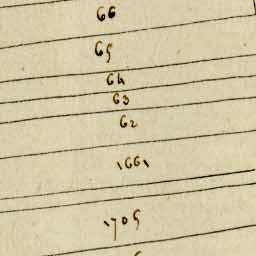 66
65
64
63
62
1661
1705